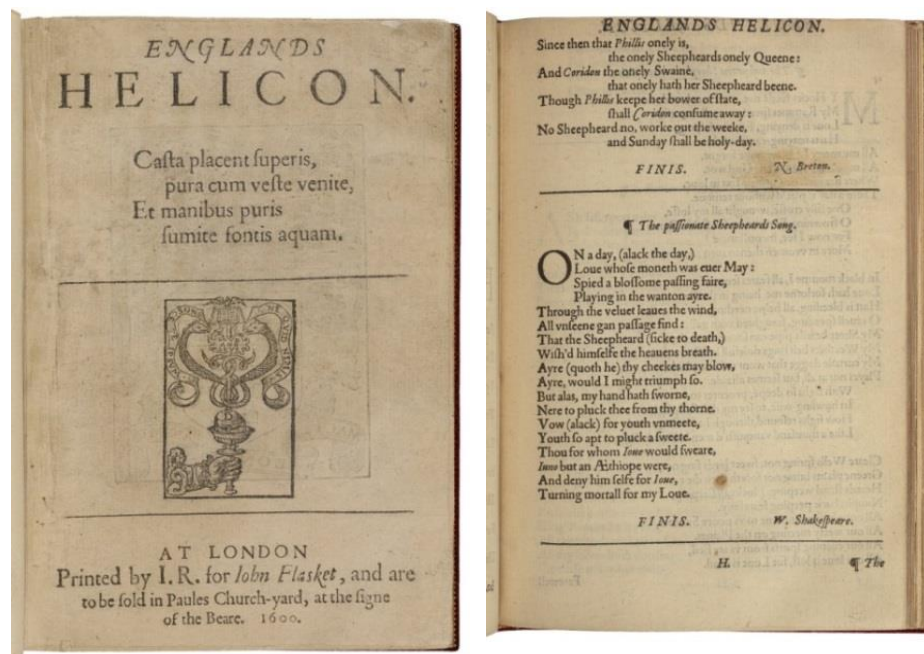 ENGLANDS
HELICON.
Casta placent superis,
pura cum veste venite,
Et manibus puris
sumite fontis aquam.
AT LONDON
Printed by I. R. for Iohn Flasket, and are
to be sold in Paules Church-yard, at the signe
of the Beare. 1600.
ENGLANDS HELICON.
Since then that Phillis onely is,
the onely Sheepheards onely Queene:
And Coridon the onely Swaine,
that onely hath her Sheepheard beene.
Though Phillis keepe her bower of state,
shall Coridon consume away:
No Sheepheard no, worke out the weeke,
and Sunday shall be holy-day.
FINIS. N. Breton.
¶ The passionate Sheepheards Song.
ON a day, (alack the day,)
Loue whose moneth was euer May:
Spied a blossome passing faire,
Playing in the wanton ayre.
Through the veluet leaues the wind,
All vnseene gan passage find:
That the Sheepheard (sicke to death,)
Wish'd himselfe the heauens breath.
Ayre (quoth he) thy cheekes may blow,
Ayre, would I might triumph so.
But alas, my hand hath sworne,
Nere to pluck thee from thy thorne.
Vow (alack) for youth vnmeete,
Youth so apt to pluck a sweete.
Thou for whom Ioue would sweare,
Iuno but an Æthiope were,
And deny him selfe for Ioue,
Turning mortall for my Loue.
FINIS. W. Shakespeare.
H. ¶ The